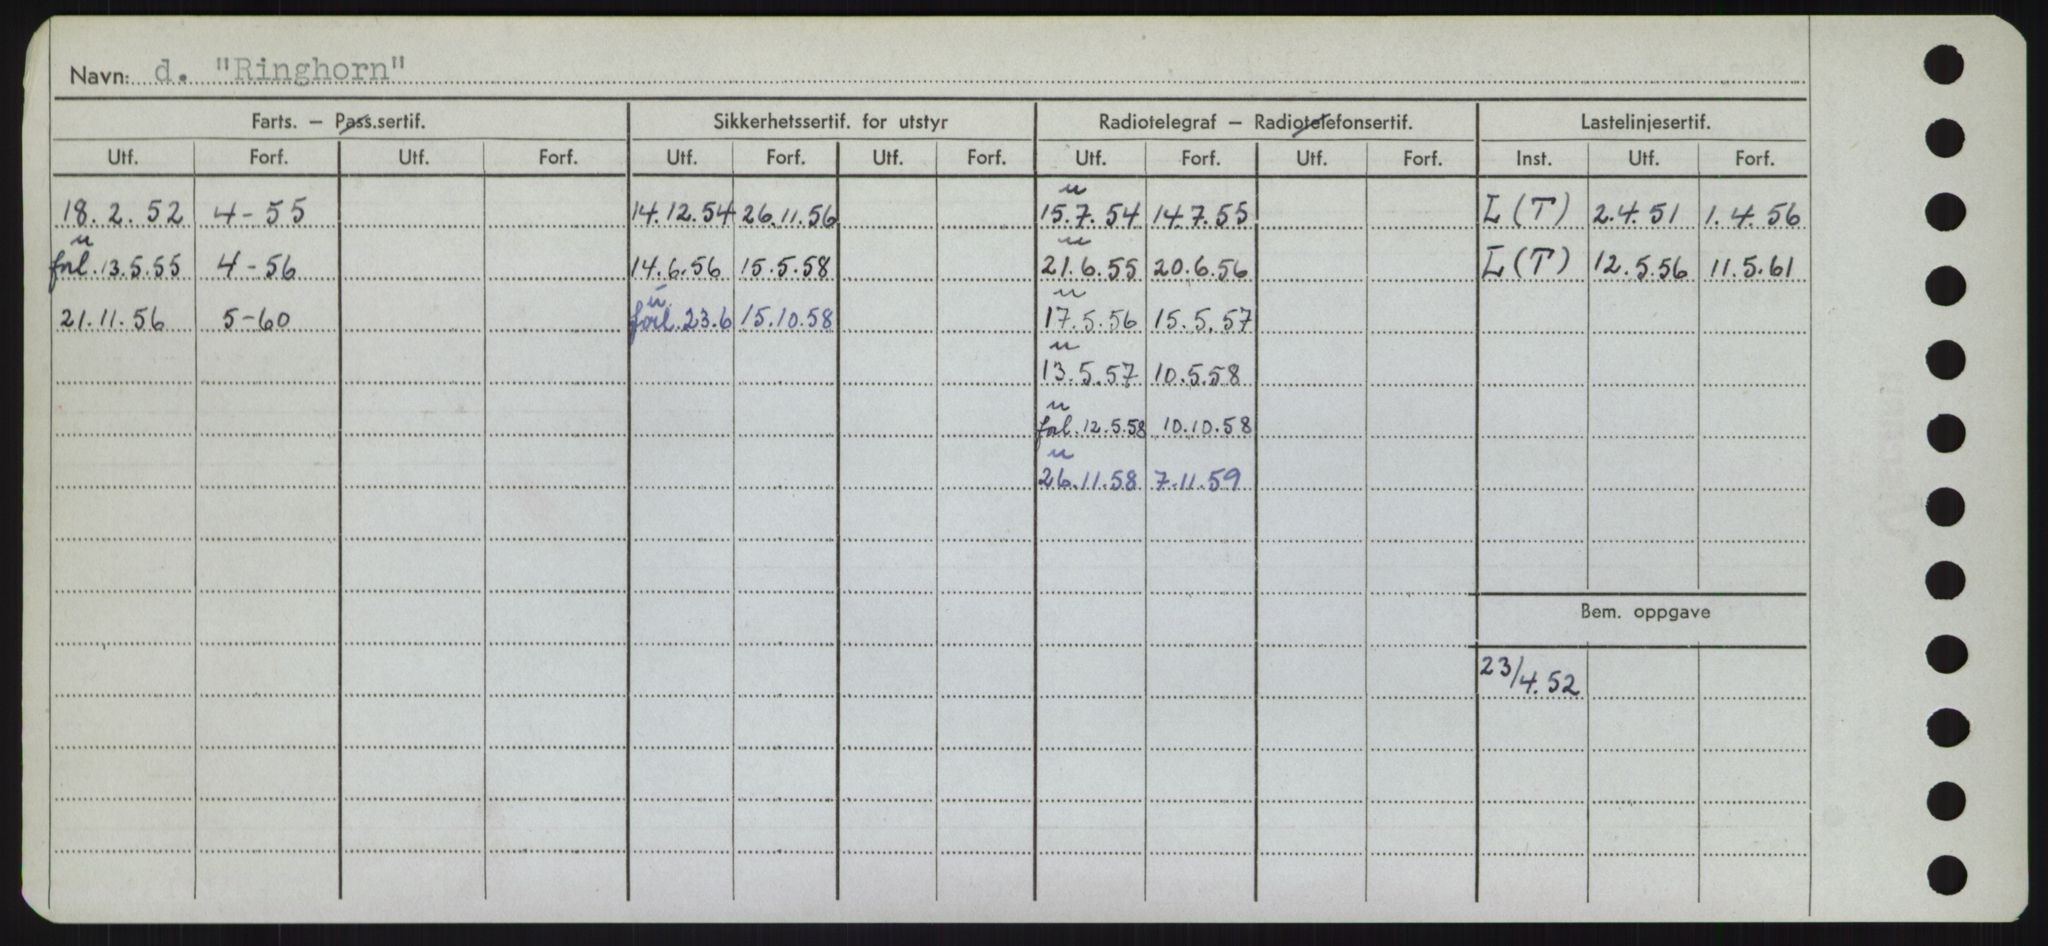 Navn: d. "Ringhorn"
Farts. — Pass.sertif. Sikkerhetssertif. for utstyr Radiotelegraf — Radiotelefonsertif. Lastelinjesertif.
Utf. Forf. Utf. Forf. Utf. Forf. Utf. Forf. Utf. Forf. Utf. Forf. Inst. Utf. Forf.
u
18.2.52 4-55 14.12.54 26.11.56 15.7.54 14.7.55 L(T) 2.4.51 1.4.56
u u
forl. 13.5.55 4-56 14.6.56 15.5.58 21.6.55 20.6.56 L(T) 12.5.56 11.5.61
u u
21.11.56 5-60 forl. 23.6 15.10.58 17.5.56 15.5.57
u
13.5.57 10.5.58
u
forl. 12.5.58 10.10.58
u
26.11.58 7.11.59
Bem. oppgave
23/4.52